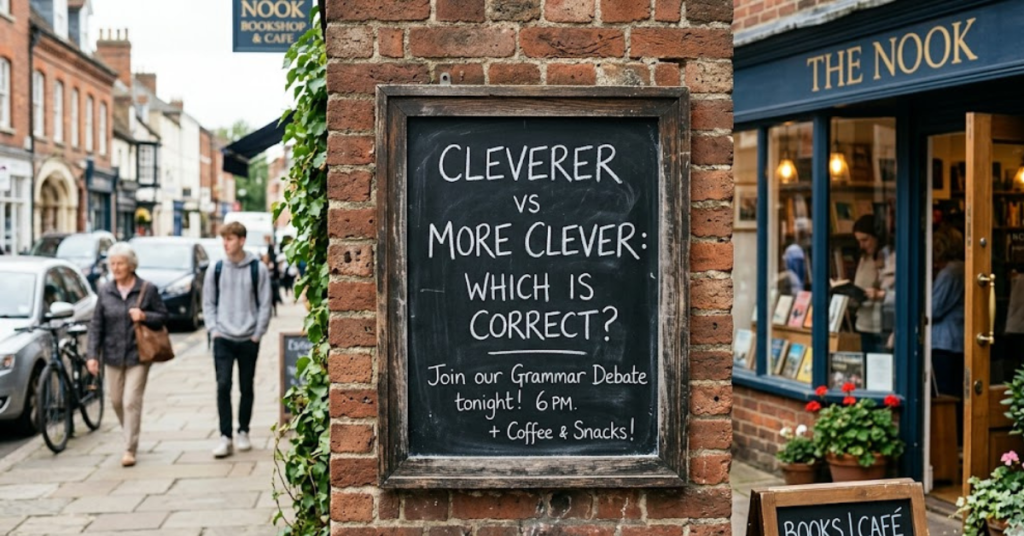 NOOK
BOOKSHOP
& CAFE
THE NOOK
CLEVERER
VS
MORE CLEVER:
WHICH IS
CORRECT?
Join our Grammar Debate
tonight! 6 PM.
+ Coffee & Snacks!
BOOKS | CAFÉ